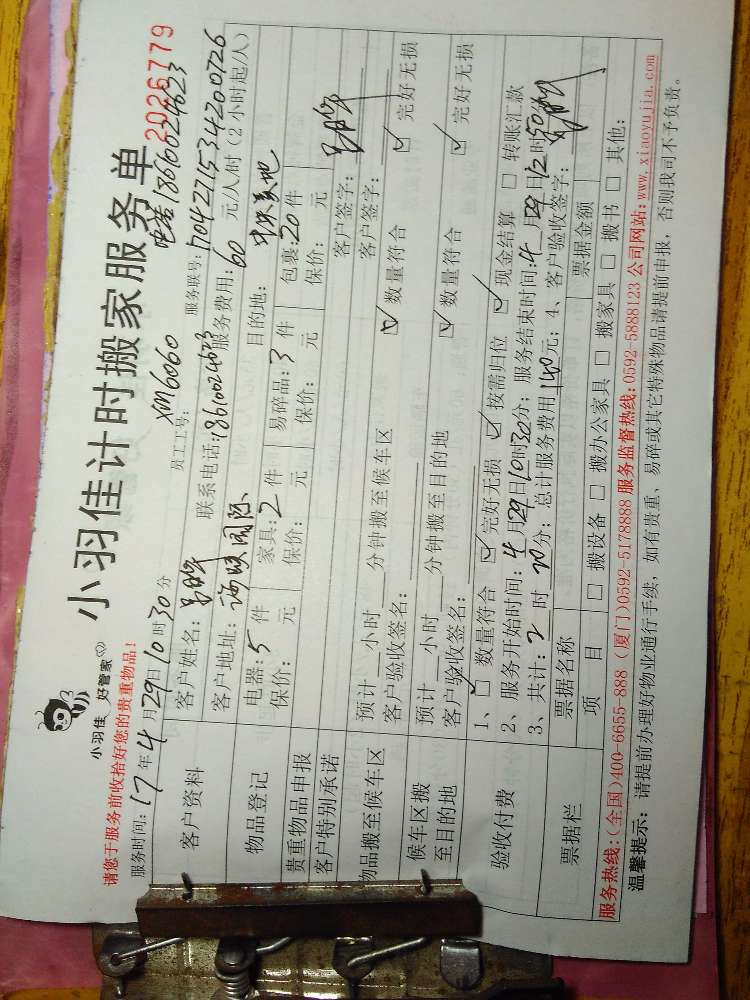 小羽佳 好管家
小羽佳计时搬家服务单
2026779
请您于服务前收拾好您的贵重物品!
电话18610024623
服务时间:17年4月29日10时30分
员工工号: XM6060
服务联号: 1704271534200726
客户资料
客户姓名:
联系电话:18610024623
服务费用:60元/人/时(2小时起/人)
客户地址:
目的地:
物品登记
电器:5件
家具:2件
易碎品:3件
包裹:20件
贵重物品申报
保价: 元
保价: 元
保价: 元
保价: 元
客户特别承诺
客户签字:
物品搬至候车区
预计__小时__分钟搬至候车区
客户签字:
客户验收签名:
数量符合
完好无损
候车区搬
至目的地
预计__小时__分钟搬至目的地
客户验收签名:
数量符合
完好无损
验收付费
1、□ 数量符合 完好无损 按需归位 现金结算 □ 转账汇款
2、服务开始时间:4月29日10时30分;服务结束时间:4月29日12时50分
3、共计:2时20分;总计服务费用140元;4、客户验收签字:
票据栏
票据名称
票据金额
项 目
□ 搬设备 □ 搬办公家具 □ 搬家具 □ 搬书 □ 其他:
服务热线:(全国)400-6655-888 (厦门)0592-5178888 服务监督热线:0592-5888123 公司网站:www.xiaoyujia.com
温馨提示: 请提前办理好物业通行手续,如有贵重、易碎或其它特殊物品请提前申报,否则我司不予负责。